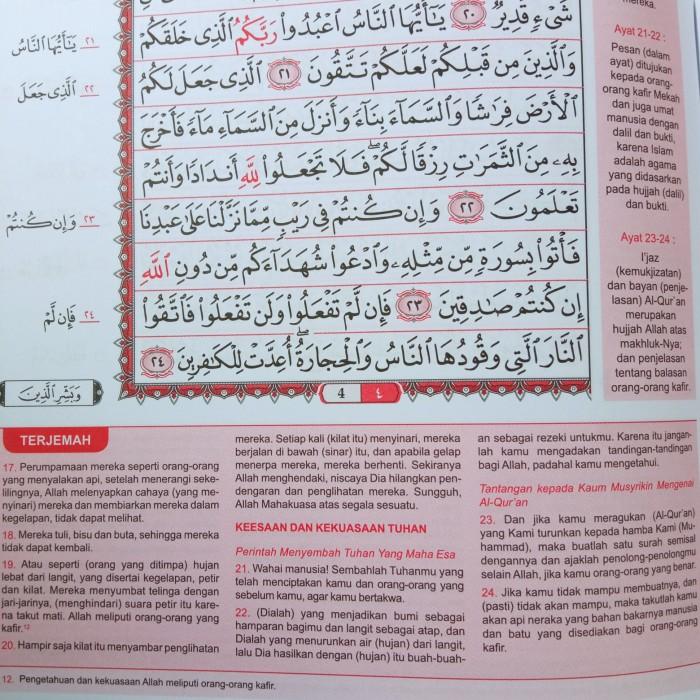 شَىْءٍ قَدِيرٌ ٢٠ يَٰٓأَيُّهَا ٱلنَّاسُ ٱعْبُدُوا۟ رَبَّكُمُ ٱلَّذِى خَلَقَكُمْ
وَٱلَّذِينَ مِن قَبْلِكُمْ لَعَلَّكُمْ تَتَّقُونَ ٢١ ٱلَّذِى جَعَلَ لَكُمُ
ٱلْأَرْضَ فِرَٰشًا وَٱلسَّمَآءَ بِنَآءً وَأَنزَلَ مِنَ ٱلسَّمَآءِ مَآءً فَأَخْرَجَ
بِهِۦ مِنَ ٱلثَّمَرَٰتِ رِزْقًا لَّكُمْ ۖ فَلَا تَجْعَلُوا۟ لِلَّهِ أَندَادًا وَأَنتُمْ
تَعْلَمُونَ ٢٢ وَإِن كُنتُمْ فِى رَيْبٍ مِّمَّا نَزَّلْنَا عَلَىٰ عَبْدِنَا
فَأْتُوا۟ بِسُورَةٍ مِّن مِّثْلِهِۦ وَٱدْعُوا۟ شُهَدَآءَكُم مِّن دُونِ ٱللَّهِ
إِن كُنتُمْ صَٰدِقِينَ ٢٣ فَإِن لَّمْ تَفْعَلُوا۟ وَلَن تَفْعَلُوا۟ فَٱتَّقُوا۟
ٱلنَّارَ ٱلَّتِى وَقُودُهَا ٱلنَّاسُ وَٱلْحِجَارَةُ ۖ أُعِدَّتْ لِلْكَٰفِرِينَ ٢٤
4 ٤
٢١ يَٰٓأَيُّهَا ٱلنَّاسُ
٢٢ ٱلَّذِى جَعَلَ
٢٣ وَإِن كُنتُمْ
٢٤ فَإِن لَّمْ
وَبَشِّرِ ٱلَّذِينَ
mereka.
Ayat 21-22 :
Pesan (dalam
ayat) ditujukan
kepada orang-
orang kafir Mekah
dan juga umat
manusia dengan
dalil dan bukti,
karena Islam
adalah agama
yang didasarkan
pada hujjah (dalil)
dan bukti.
Ayat 23-24 :
I'jaz
(kemukjizatan)
dan bayan (penje-
lasan) Al-Qur'an
merupakan
hujjah Allah atas
makhluk-Nya;
dan penjelasan
tentang balasan
orang-orang kafir.
TERJEMAH
17. Perumpamaan mereka seperti orang-orang
yang menyalakan api, setelah menerangi seke-
lilingnya, Allah melenyapkan cahaya (yang me-
nyinari) mereka dan membiarkan mereka dalam
kegelapan, tidak dapat melihat.
18. Mereka tuli, bisu dan buta, sehingga mereka
tidak dapat kembali.
19. Atau seperti (orang yang ditimpa) hujan
lebat dari langit, yang disertai kegelapan, petir
dan kilat. Mereka menyumbat telinga dengan
jari-jarinya, (menghindari) suara petir itu kare-
na takut mati. Allah meliputi orang-orang yang
kafir.12
20. Hampir saja kilat itu menyambar penglihatan
mereka. Setiap kali (kilat itu) menyinari, mereka
berjalan di bawah (sinar) itu, dan apabila gelap
menerpa mereka, mereka berhenti. Sekiranya
Allah menghendaki, niscaya Dia hilangkan pen-
dengaran dan penglihatan mereka. Sungguh,
Allah Mahakuasa atas segala sesuatu.
KEESAAN DAN KEKUASAAN TUHAN
Perintah Menyembah Tuhan Yang Maha Esa
21. Wahai manusia! Sembahlah Tuhanmu yang
telah menciptakan kamu dan orang-orang yang
sebelum kamu, agar kamu bertakwa.
22. (Dialah) yang menjadikan bumi sebagai
hamparan bagimu dan langit sebagai atap, dan
Dialah yang menurunkan air (hujan) dari langit,
lalu Dia hasilkan dengan (hujan) itu buah-buah-
an sebagai rezeki untukmu. Karena itu jangan-
lah kamu mengadakan tandingan-tandingan
bagi Allah, padahal kamu mengetahui.
Tantangan kepada Kaum Musyrikin Mengenai
Al-Qur'an
23. Dan jika kamu meragukan (Al-Qur'an)
yang Kami turunkan kepada hamba Kami (Mu-
hammad), maka buatlah satu surah semisal
dengannya dan ajaklah penolong-penolongmu
selain Allah, jika kamu orang-orang yang benar.
24. Jika kamu tidak mampu membuatnya, dan
(pasti) tidak akan mampu, maka takutlah kamu
akan api neraka yang bahan bakarnya manusia
dan batu yang disediakan bagi orang-orang
kafir.
12. Pengetahuan dan kekuasaan Allah meliputi orang-orang kafir.